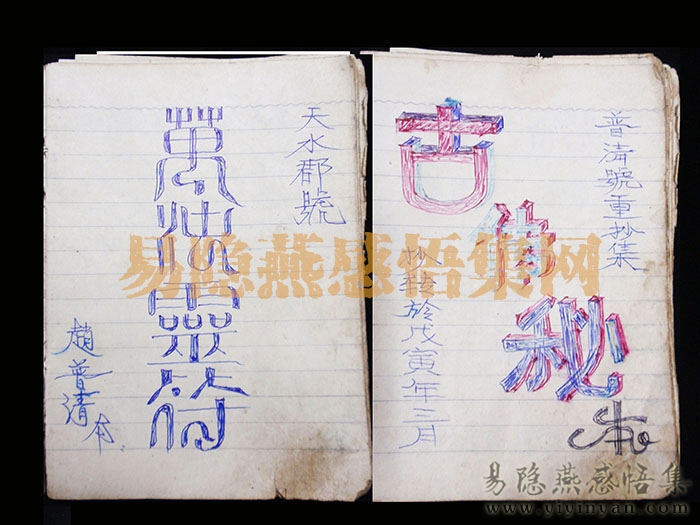 天水郡號
萬法靈符
趙普清本
普清號重抄集
古佛秘
抄转於戊寅年三月
易隐燕感悟集网
易隐燕感悟集
www.yiyinyan.com